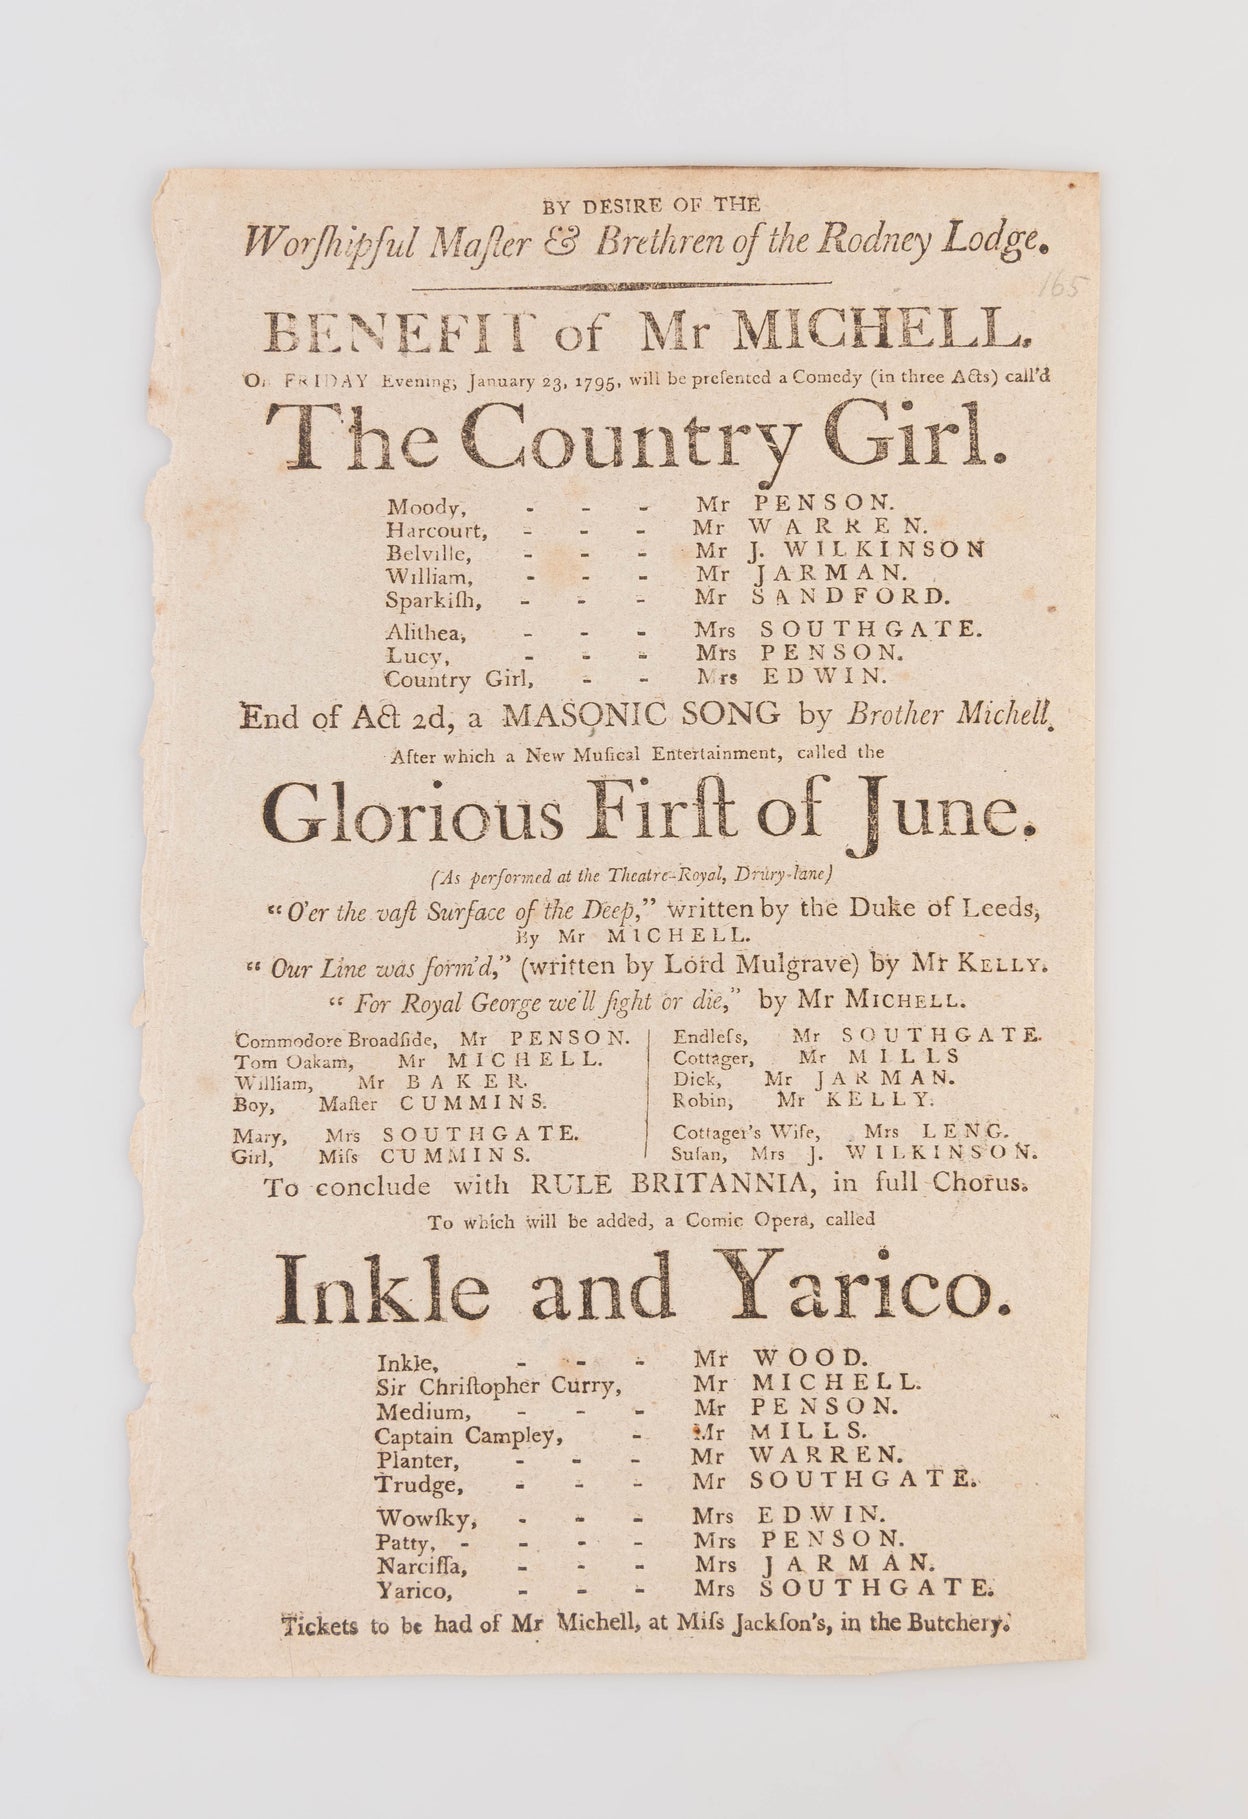 BY DESIRE OF THE
Worſhipful Maſter & Brethren of the Rodney Lodge.
165
BENEFIT of Mr MICHELL.
On FRIDAY Evening, January 23, 1795, will be preſented a Comedy (in three Acts) call'd
The Country Girl.
Moody, - - - Mr PENSON.
Harcourt, - - - Mr WARREN.
Belville, - - - Mr J. WILKINSON
William, - - - Mr JARMAN.
Sparkiſh, - - - Mr SANDFORD.
Alithea, - - - Mrs SOUTHGATE.
Lucy, - - - Mrs PENSON.
Country Girl, - - Mrs EDWIN.
End of Act 2d, a MASONIC SONG by Brother Michell.
After which a New Muſical Entertainment, called the
Glorious Firſt of June.
(As performed at the Theatre-Royal, Drury-lane)
"O'er the vaſt Surface of the Deep," written by the Duke of Leeds,
By Mr MICHELL.
"Our Line was form'd," (written by Lord Mulgrave) by Mr KELLY.
"For Royal George we'll fight or die," by Mr MICHELL.
Commodore Broadſide, Mr PENSON.
Tom Oakam, Mr MICHELL.
William, Mr BAKER.
Boy, Maſter CUMMINS.
Mary, Mrs SOUTHGATE.
Girl, Miſs CUMMINS.
Endleſs, Mr SOUTHGATE.
Cottager, Mr MILLS
Dick, Mr JARMAN.
Robin, Mr KELLY.
Cottager's Wife, Mrs LENG.
Suſan, Mrs J. WILKINSON.
To conclude with RULE BRITANNIA, in full Chorus.
To which will be added, a Comic Opera, called
Inkle and Yarico.
Inkle, - - - Mr WOOD.
Sir Chriſtopher Curry, Mr MICHELL.
Medium, - - - Mr PENSON.
Captain Campley, - Mr MILLS.
Planter, - - - Mr WARREN.
Trudge, - - - Mr SOUTHGATE.
Wowſky, - - - Mrs EDWIN.
Patty, - - - - Mrs PENSON.
Narciſſa, - - - Mrs JARMAN.
Yarico, - - - Mrs SOUTHGATE.
Tickets to be had of Mr Michell, at Miſs Jackſon's, in the Butchery.